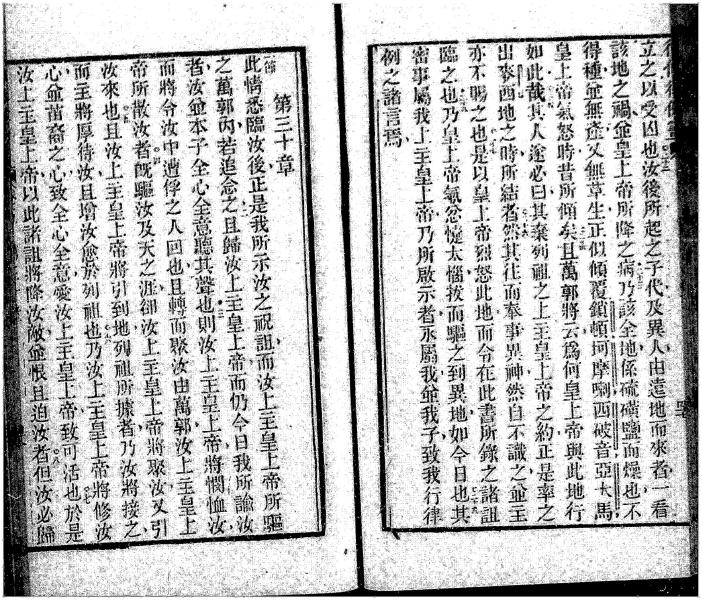 立之以受凶也汝後所起之子代及異人由遠地而來者一看
該地之禍並皇上帝所降之病乃該全地係硫磺鹽而燥也不
得種並無產又無草生正似傾覆鎖頓坷摩喇西破音亞大馬
皇上帝氣怒時昔所傾矣且萬郭將云爲何皇上帝與此地行
如此哉其人遂必曰其棄列祖之上主皇上帝之約正是率之
出麥西地之時所結者然其往而奉事異神然自不識之並主
亦不賜之也是以皇上帝烈怒此地而令在此書所錄之諸詛
臨之也乃皇上帝氣忿懥太惱拔而驅之到異地如今日也其
密事屬我上主皇上帝乃所啟示者永屬我並我子致我行律
例之諸言焉
第三十章
此情悉臨汝後正是我所示汝之祝詛而汝上主皇上帝所驅
之萬郭內若追念之且歸汝上主皇上帝而仍今日我所諭汝
者汝並本子全心全意聽其聲也則汝上主皇上帝將憫恤汝
而將令汝中遭俘之人回也且轉而聚汝由萬郭汝上主皇上
帝所散汝者旣驅汝及天之涯卻汝上主皇上帝將聚汝又引
汝來也且汝上主皇上帝將引到地列祖所據者乃汝將接之
而主將厚待汝且增汝愈於列祖也乃汝上主皇上帝將修汝
心並苗裔之心致全心全意愛汝上主皇上帝致可活也於是
汝上主皇上帝以此諸詛將降汝敵並恨且迫汝者但汝必歸